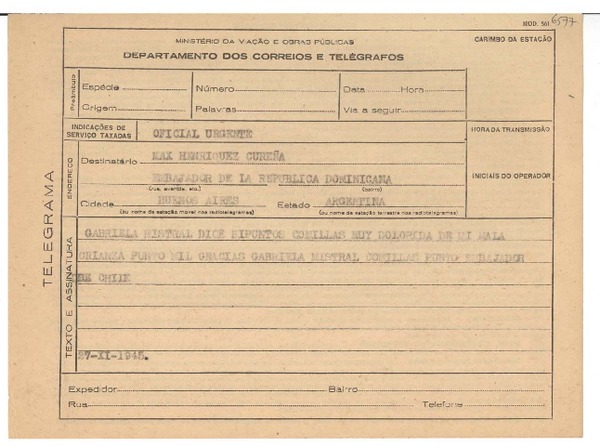 MOD. 561 6577
MINISTÉRIO DA VIAÇÃO E OBRAS PÚBLICAS
CARIMBO DA ESTAÇÃO
DEPARTAMENTO DOS CORREIOS E TELÉGRAFOS
Preâmbulo
Espécie Número Data Hora
Origem Palavras Via a seguir
INDICAÇÕES DE
SERVIÇO TAXADAS
OFICIAL URGENTE
HORA DA TRANSMISSÃO
TELEGRAMA
ENDEREÇO
Destinatário MAX HENRIQUEZ CUREÑA
EMBAJADOR DE LA REPUBLICA DOMINICANA
INICIAIS DO OPERADOR
(rua, avenida, etc.) (bairro)
Cidade BUENOS AIRES Estado ARGENTINA
(ou nome da estação móvel nos radiotelegramas) (ou nome da estação terrestre nos radiotelegramas)
TEXTO E ASSINATURA
GABRIELA MISTRAL DICE BIPUNTOS COMILLAS MUY DOLORIDA DE MI MALA
CRIANZA PUNTO MIL GRACIAS GABRIELA MISTRAL COMILLAS PUNTO EMBAJADOR
DE CHILE
27-XI-1945.
Expedidor Bairro
Rua Telefone